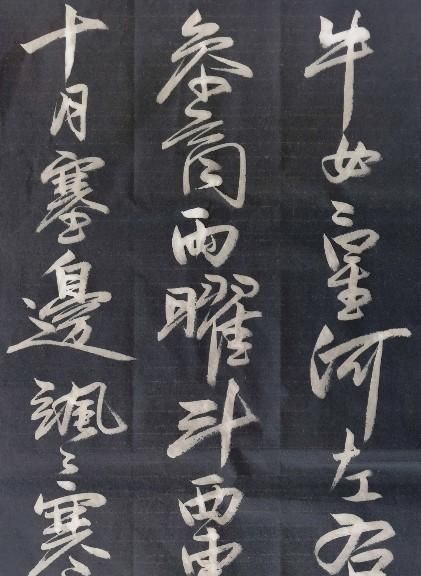 牛女二星河左右
參商兩曜斗西東
十月塞邊颯々寒